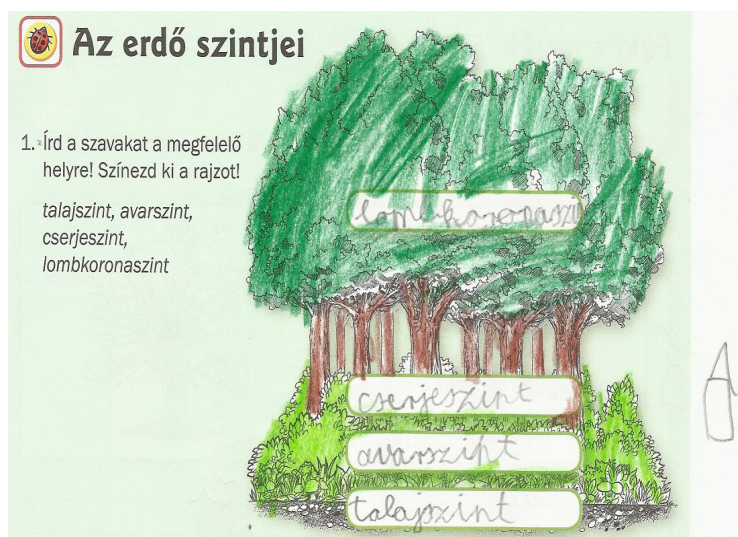 Az erdő szintjei
1. Írd a szavakat a megfelelő
helyre! Színezd ki a rajzot!
talajszint, avarszint,
cserjeszint,
lombkoronaszint
lombkoronaszi
cserjeszint
avarszint
talajszint